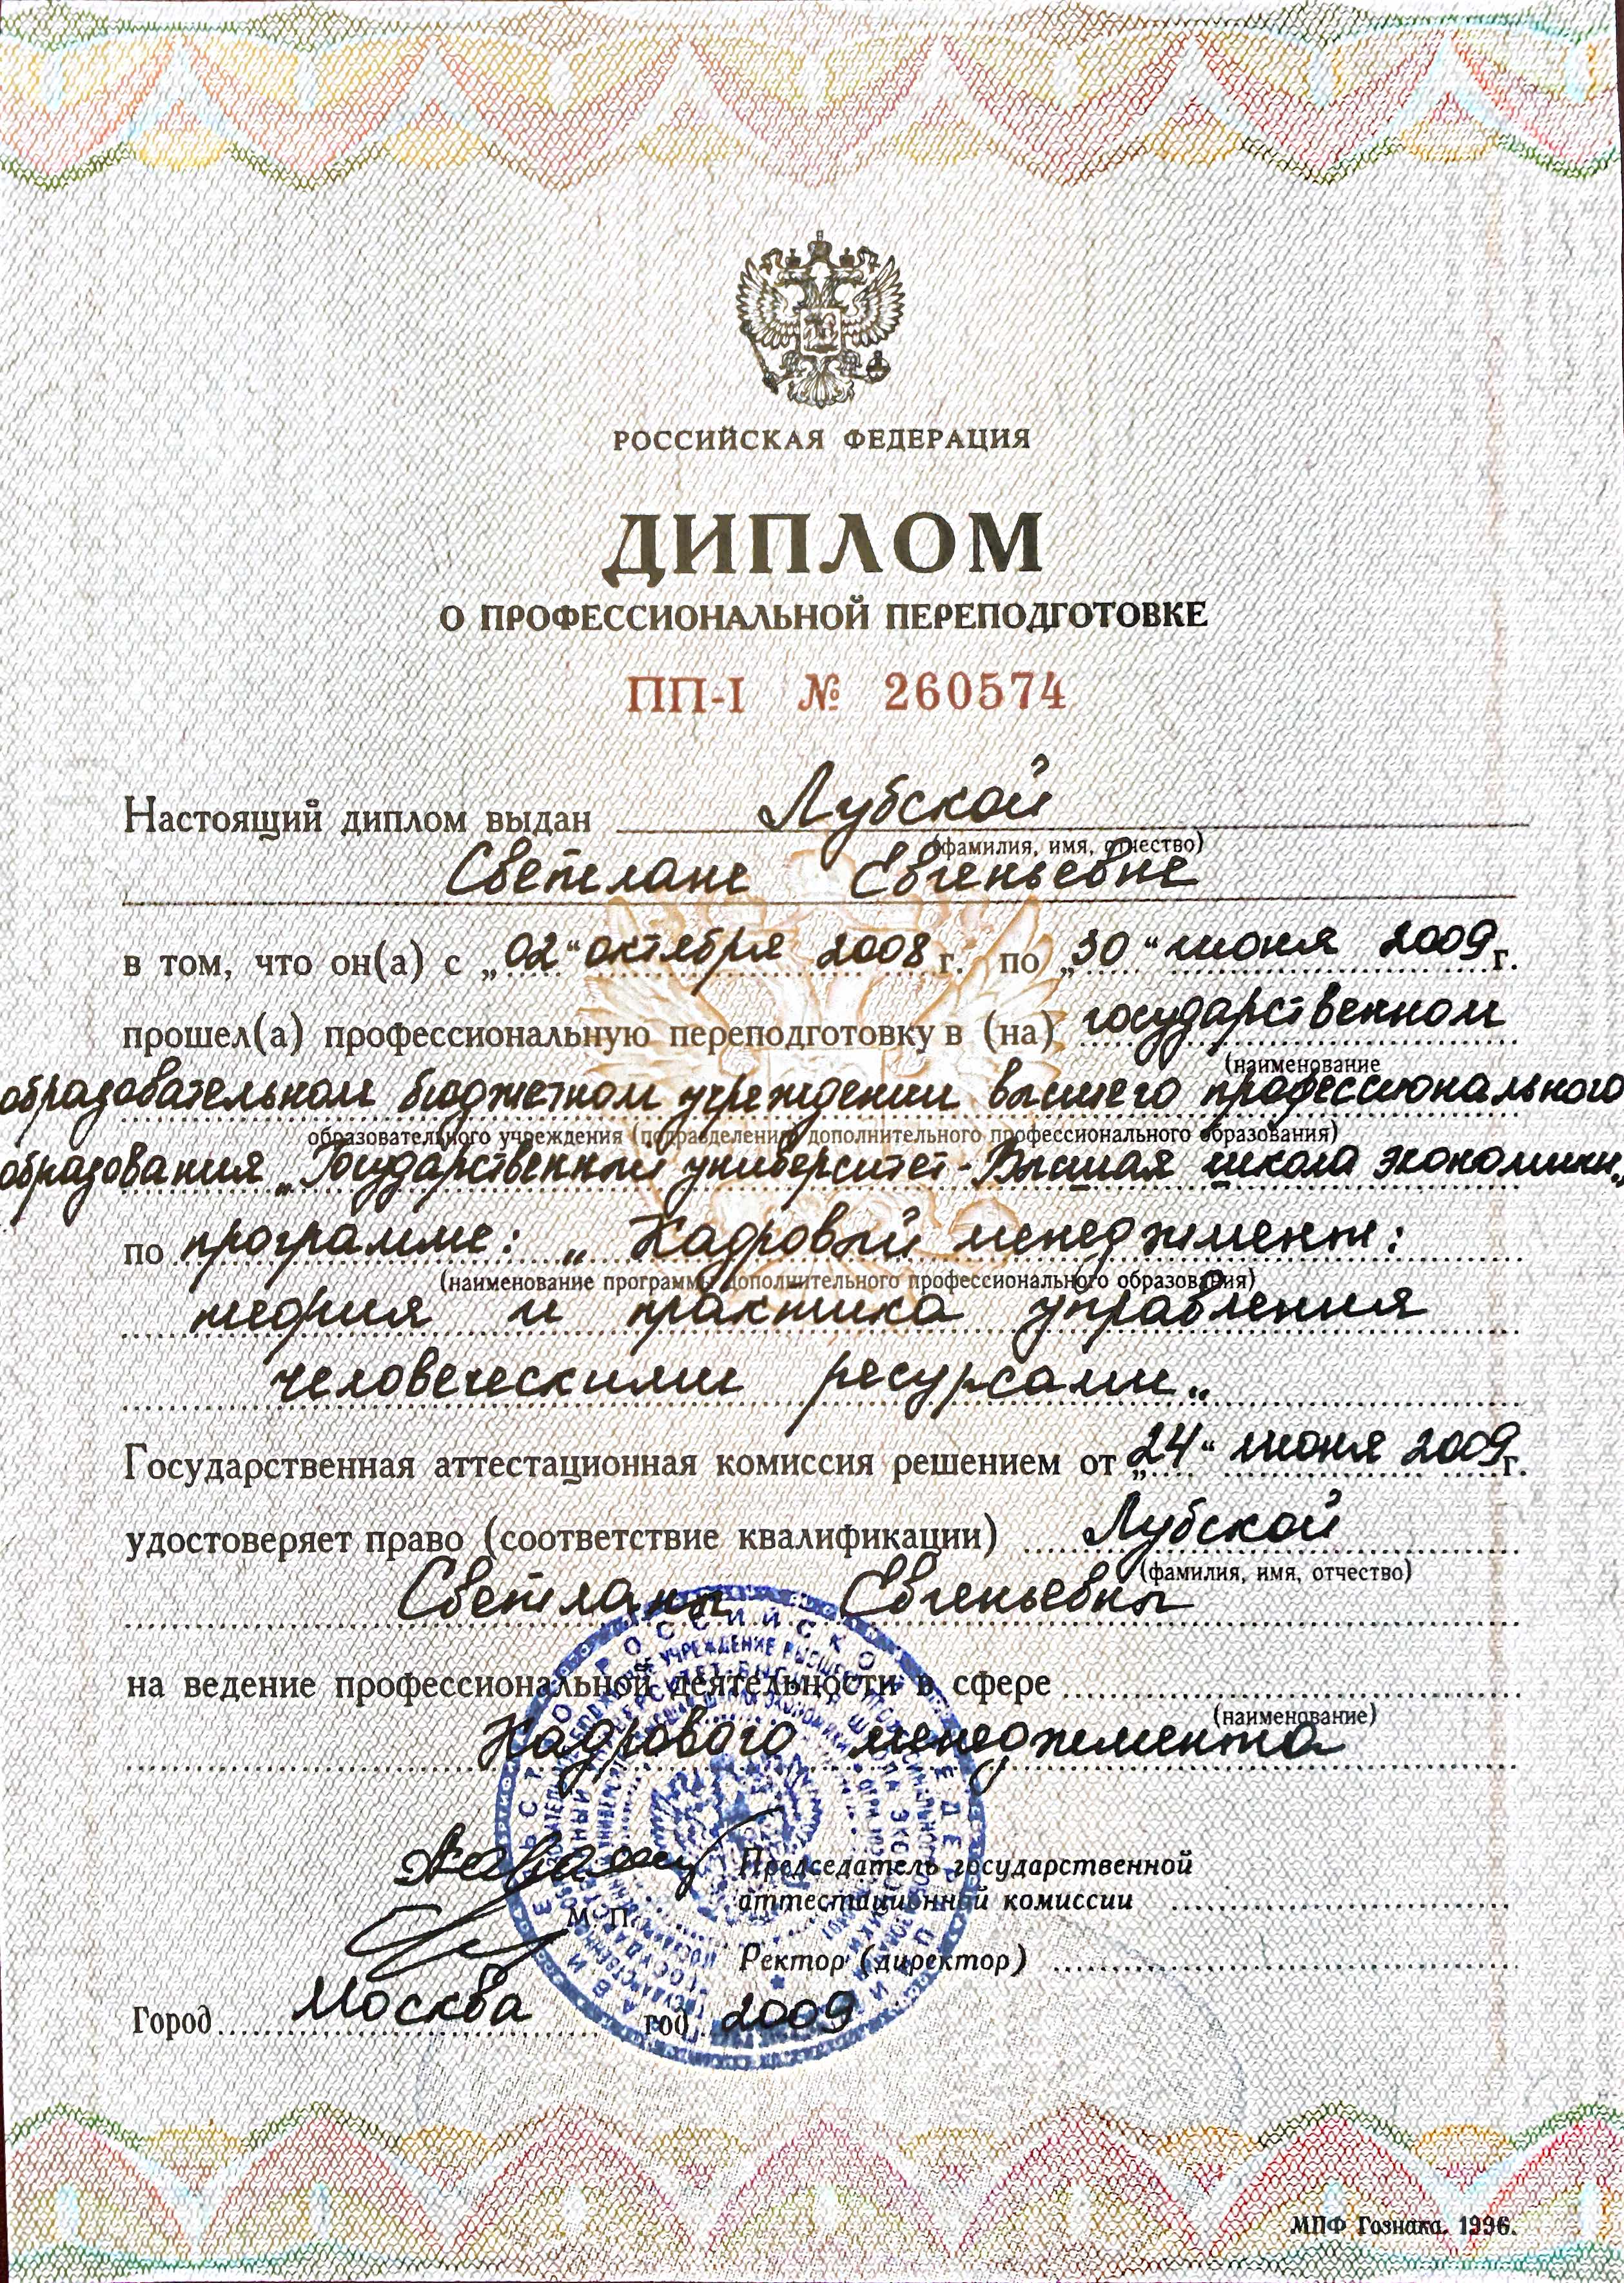 РОССИЙСКАЯ ФЕДЕРАЦИЯ
ДИПЛОМ
О ПРОФЕССИОНАЛЬНОЙ ПЕРЕПОДГОТОВКЕ
ПП-I № 260574
Настоящий диплом выдан Лубской
(фамилия, имя, отчество)
Светлане Евгеньевне
в том, что он(а) с „02“ октября 2008 г. по „30“ июня 2009 г.
прошел(а) профессиональную переподготовку в (на) государственном
(наименование
образовательном бюджетном учреждении высшего профессионального
образовательного учреждения (подразделения) дополнительного профессионального образования)
образования „Государственный университет-Высшая школа экономики„
по программе: „ Кадровый менеджмент:
(наименование программы дополнительного профессионального образования)
теория и практика управления
человеческими ресурсами„
Государственная аттестационная комиссия решением от „24“ июня 2009 г.
удостоверяет право (соответствие квалификации) Лубской
(фамилия, имя, отчество)
Светланы Евгеньевны
на ведение профессиональной деятельности в сфере
(наименование)
Кадрового менеджмента
Председатель государственной
аттестационной комиссии
М. П.
Ректор (директор)
Город Москва год 2009
МПФ Гознака. 1996.